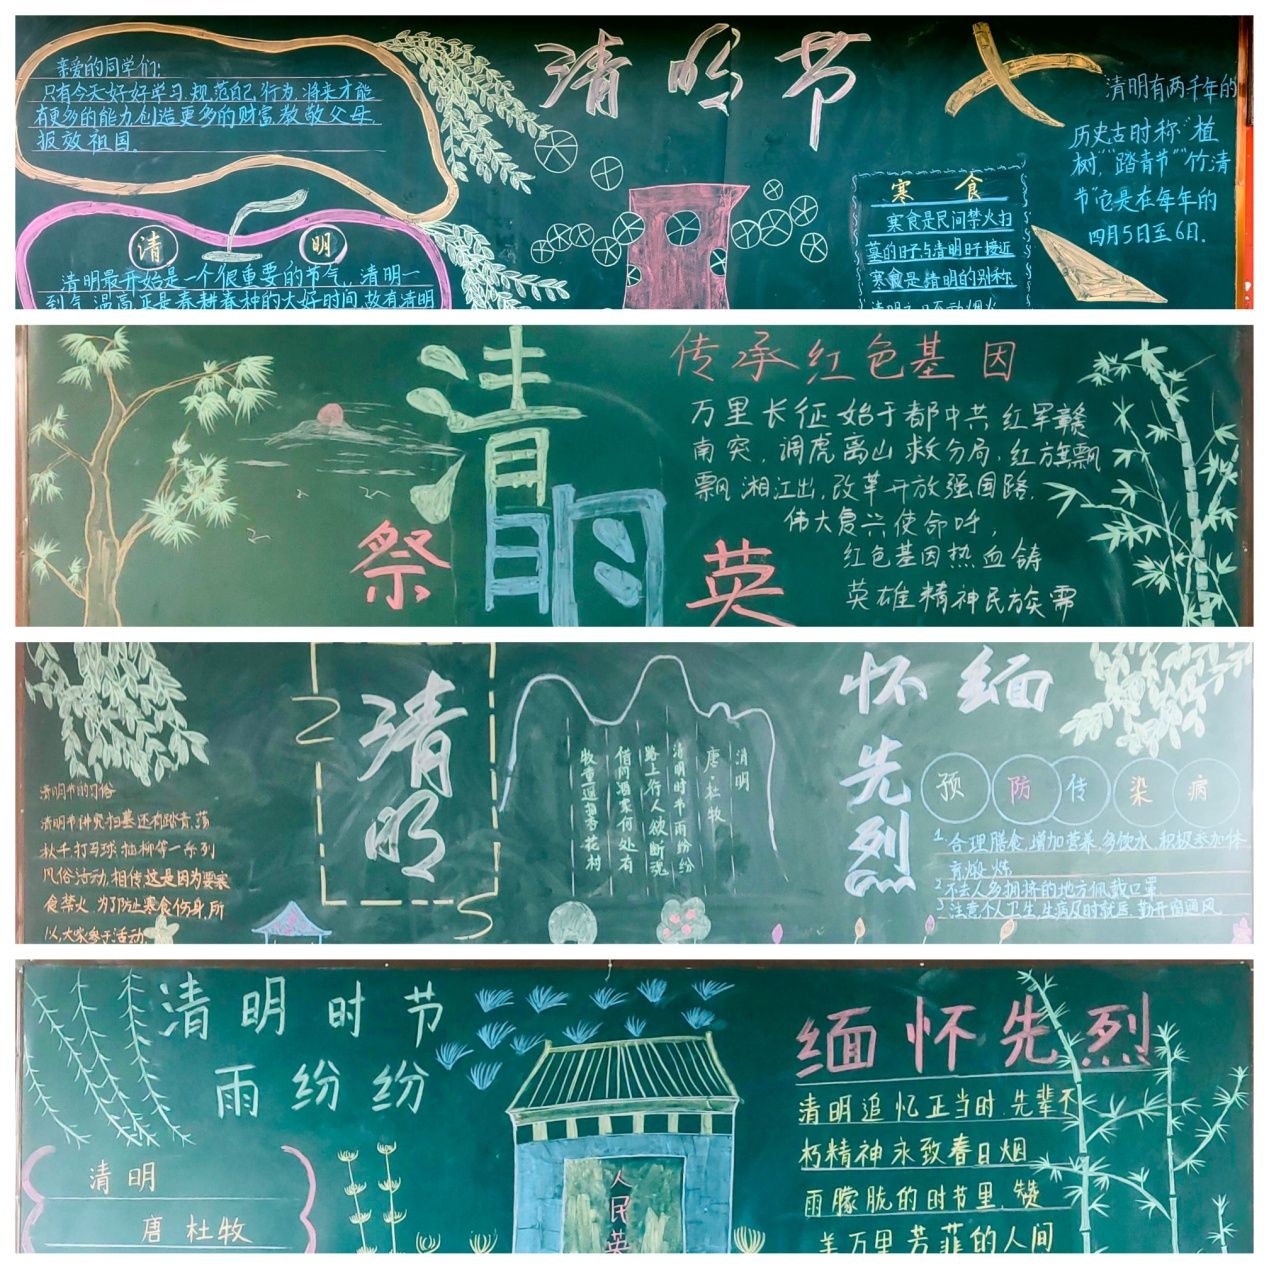 清明节
亲爱的同学们:
只有今天好好学习,规范自己行为,将来才能
有更多的能力创造更多的财富,教敬父母,
报效祖国。
清 明
清明最开始是一个很重要的节气,清明一
到气温高,正是春耕春种的大好时间,故有清明
寒食
寒食是民间禁火扫
墓的日子,与清明日子接近
寒食是清明的别称
清明有两千年的
历史古时称“植
树”“踏青节”“竹清
节”它是在每年的
四月5日至6日.
清明
祭英
传承红色基因
万里长征始于都中共红军赣
南突,调虎离山救分局,红旗飘
飘湘江出,改革开放强国路,
伟大复兴使命呼,
红色基因热血铸
英雄精神民族需
清明节的习俗
清明节讲究扫墓还有踏青、荡
秋千、打马球、插柳等一系列
风俗活动,相传这是因为要寒
食禁火,为了防止寒食伤身,所
以,大家参于活动
清明
清明
唐·杜牧
清明时节雨纷纷
路上行人欲断魂
借问酒家何处有
牧童遥指杏花村
怀缅
先烈
预防传染病
1.合理膳食,增加营养,多饮水,积极参加体
育煅炼
2.不去人多拥挤的地方佩戴口罩.
3.注意个人卫生,生病及时就医,勤开窗通风
清明时节
雨纷纷
清明
唐 杜牧
人民英
缅怀先烈
清明追忆正当时,先辈不
朽精神永致春日烟
雨朦胧的时节里,赞
美万里芳菲的人间